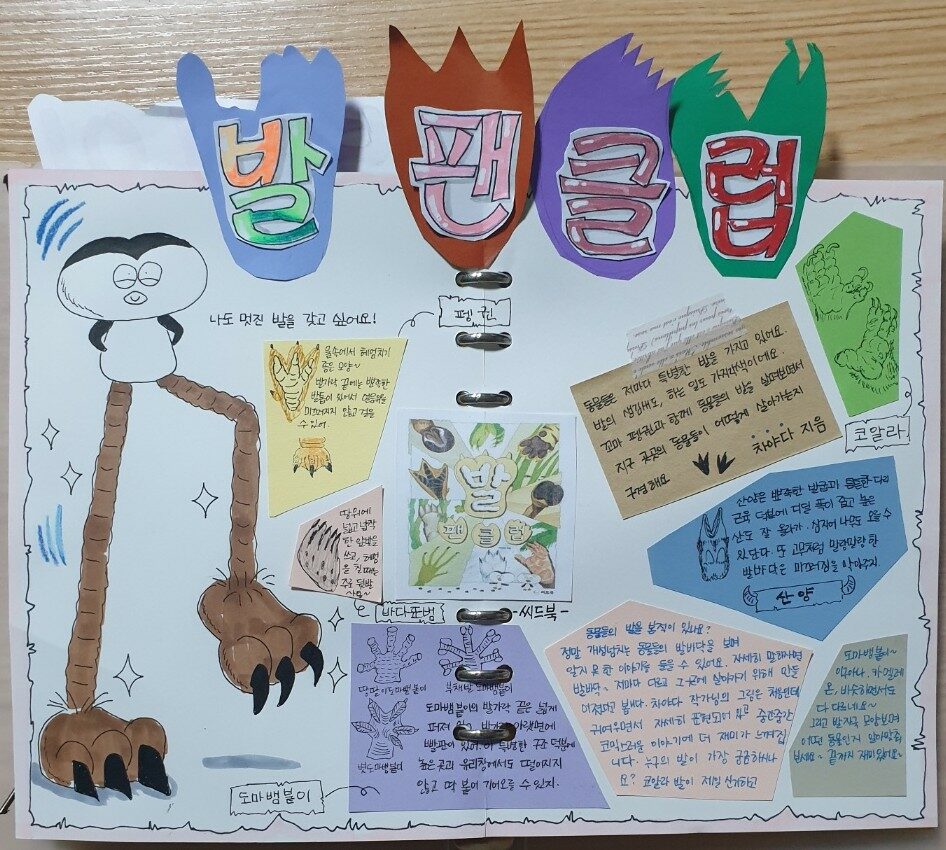 발 팬 클 럽
나도 멋진 발을 갖고 싶어요!
펭귄
물속에서 헤엄치기
좋은 모양~
발가락 끝에는 뾰족한
발톱이 있어서 얼음위를
미끄러지지 않고 걸을
수 있어.
땅위에
넓고 납작
한 앞발을
쓰고, 헤엄
을 칠 때는
주로 뒷발
사용~
바다표범
발
팬클럽
-씨드북-
동물들은 저마다 특별한 발을 가지고 있어요.
발의 생김새도, 하는 일도 가지각색이에요.
꼬마 펭귄과 함께 동물들의 발을 살펴보면서
지구 곳곳의 동물들이 어떻게 살아가는지
구경해요
차야다 지음
코알라
산양은 뾰족한 발굽과 튼튼한 다리
근육 덕분에 디딜 폭이 좁고 높은
산도 잘 올라가. 심지어 나무도 오를 수
있단다. 또 고무처럼 말랑말랑한
발바닥은 미끄러짐을 막아주지.
산양
땅딸이도마뱀붙이
부채발 도마뱀붙이
볏도마뱀붙이
도마뱀붙이의 발가락 끝은 넓게
퍼져 있고, 발가락 아랫면에
빨판이 있어. 이 특별한 구조 덕분에
높은 곳과 유리창에서도 떨어지지
않고 딱 붙어 기어오를 수 있지.
도마뱀붙이
동물들의 발을 본적이 있나요?
정말 개성넘치는 동물들의 발바닥을 보며
알지 못한 이야기들을 들을 수 있어요. 자세히 말하자면
발바닥~ 저마다 다르고 그곳에 살아가기 위해 만들
어졌다고 봅니다. 차야다 작가님의 그림은 처음인데
귀여우면서 자세히 표현되어 있고 중간중간
코믹스러운 이야기에 더 재미가 느껴집
니다. 누구의 발이 가장 궁금하시나
요? 코알라 발이 제일 신기하고
도마뱀붙이~
이구아나, 카멜레
온, 비슷하면서도
다 다르네요~
그리고 발자국 모양보며
어떤 동물인지 알아맞춰
보세요~ 끝까지 재미있어요~